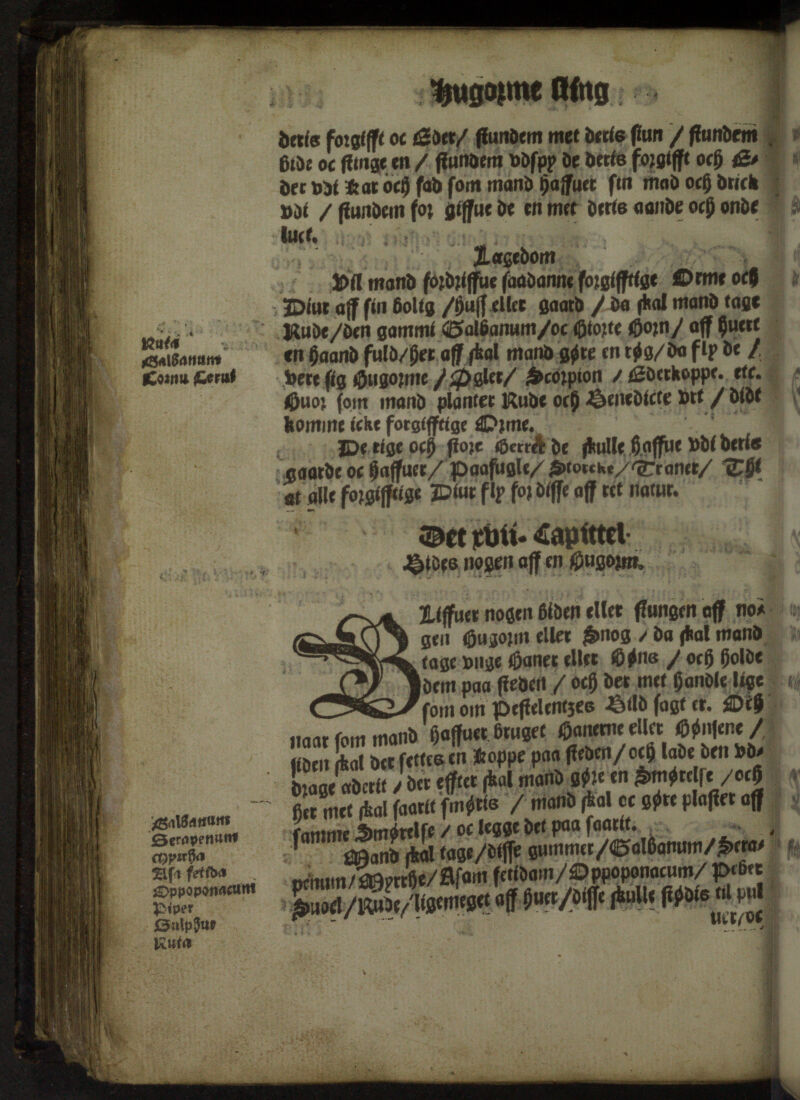 Hugorme Sting
deris forgifft oc Eder/ stundem met deris stiun / stundem
bide oc stinge en / stundem vdspy de deris forgifft och E-
der vdi Kar och fad som mand haffuer sin mad och drick
vdi / stundem for giffue de en met deris aande och onde
luct.
Lægedom
Vil mand fordriffue saadanne forgifftige Orme och
Diur aff sin bolig /huss eller gaard / da skal mand tage
Rude/den gammi Galbanum/oc Hiorte Horn/ aff huert
en haand fuld/her aff skal mand gøre en røg/da fly de /
vere sig Hugorme / Øgler/ Scorpion / Ederkoppe. etc.
Huor som mand planter Rude och Benedicte vrt / didt
komme icke forgifftige Orme.
De rige och store Herrer de skulle haffue vdi deris
gaarde oc haffuer/ Paafugle/ Storcke/ Traner/ Thi
at alle forgifftige Diur fly for disse aff ret natur.
Det xvii. Capittel
Bides nogen aff en Hugorm.
BLiffuer nogen biden eller stungen aff no-
gen Hugorm eller Snog / da skal mand
tage vnge Haner eller Høns / och holde
dem paa steden / och der met handle lige
som om Pestelentzes Bild sagt er. Och
naar som mand haffuer bruget Hanerne eller Hønsene /
siden skal der settes en Koppe paa steden/och lade den vd-
drage aderit / der effter skal mand gøre en Smørelse /och
her met skal saarit smøris / mand skal oc gøre plaster aff
samme Smørelse / oc legge det paa saarit.
Mand skal tage/disse gummer/Galbanum/Sera-
penum/Myrrhe/Asam fetidam/Oppoponacum/ Peber
Suoel/Rude/ligemeget aff huer/disse skulle stødis til pul
uer/oc
Ruta
Galbanum
Cornu Cerui
Galbanum
Serapenum
Myrrha
Asa fetida
Oppoponacum
Piper
Sulphur
Ruta